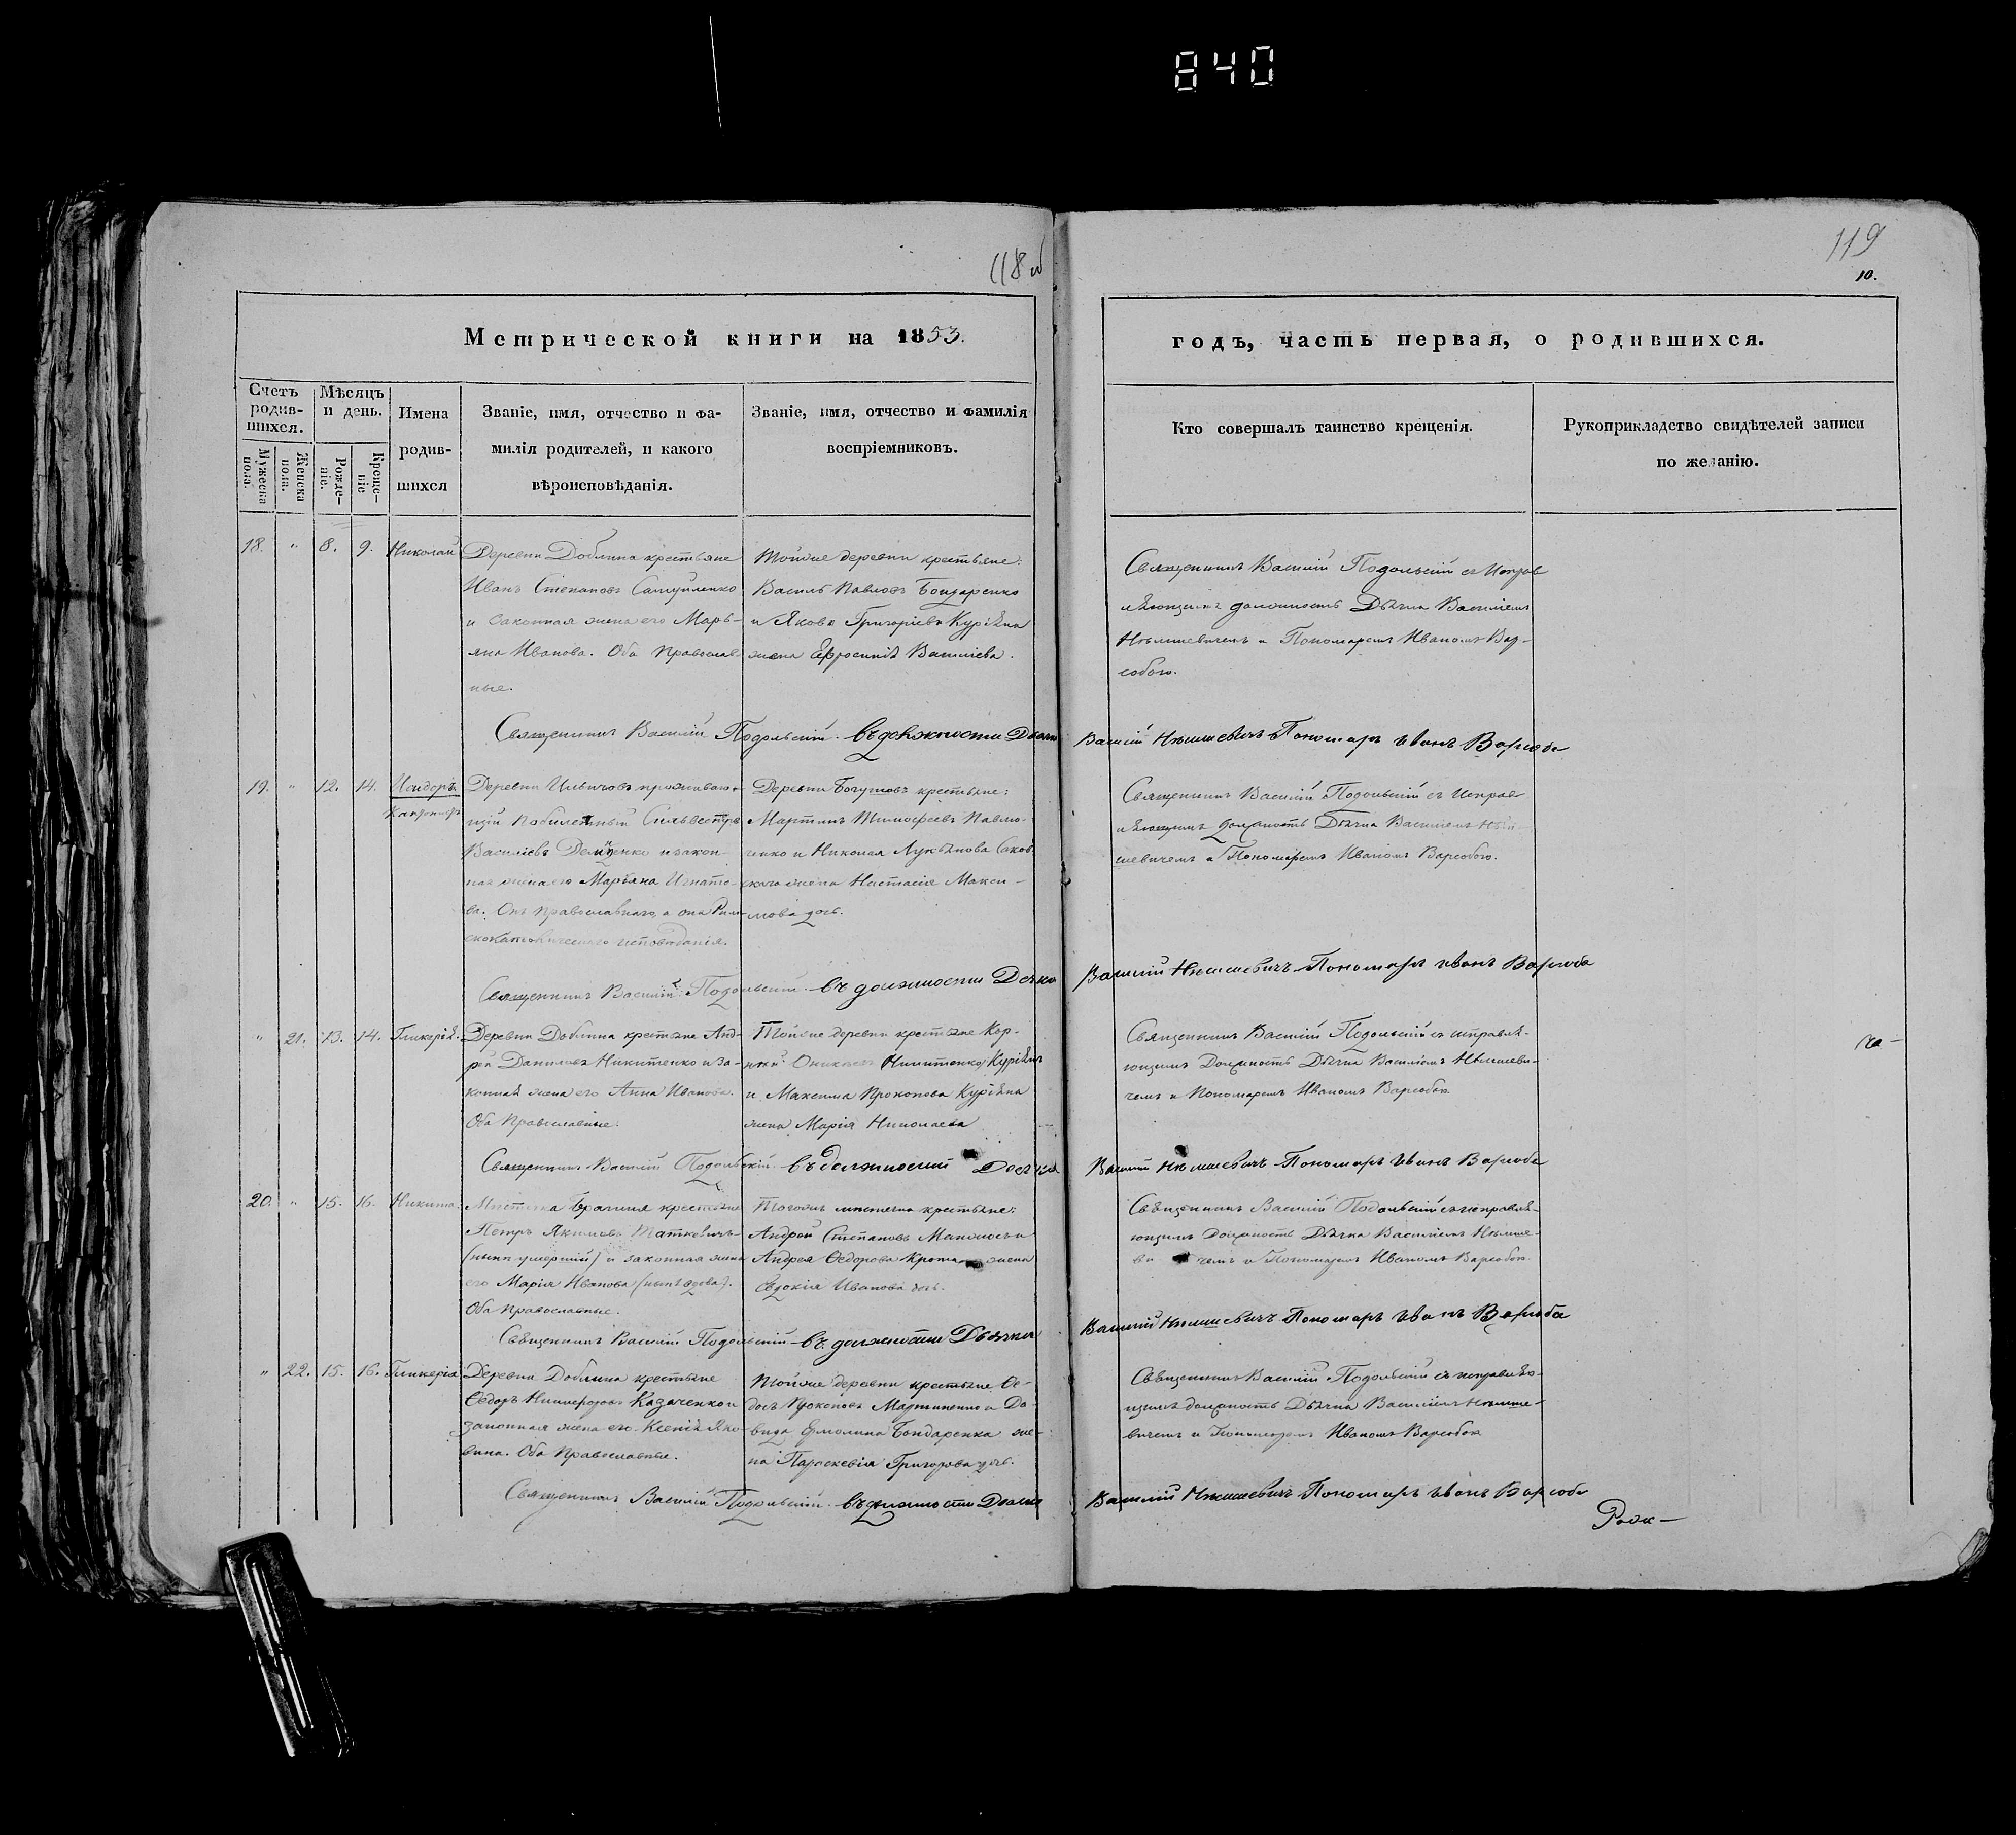 840
118 об
119
10.
Метрической книги на 1853.
годъ, часть первая, о родившихся.
Счетъ родив-
шихся.
Мужеска пола.
Женска пола.
Мѣсяцъ и день.
Рожде-
ніе.
Креще-
ніе
Имена
родив-
шихся
Званіе, имя, отчество и фа-
милія родителей, и какого
вѣроисповѣданія.
Званіе, имя, отчество и фамилія
воспріемниковъ.
Кто совершалъ таинство крещенія.
Рукоприкладство свидѣтелей записи
по желанію.
18. " 8. 9. Николай
Деревни Доблина крестьяне
Иванъ Степановъ Самуйленко
и Законная жена его Марь-
яна Иванова. Оба Православ-
ные.
Тойже деревни крестьяне:
Василь Павловъ Бондаренко
и Якова Григоріева Куріяна
жена Ефросинія Василіева.
Священникъ Василій Подольскій съ Исправ
ляющимъ должность Дьячка Василіемъ
Нѣмшевичемъ и Пономаремъ Иваномъ Вар-
собою.
Священникъ Василій Подольскій. Въ должности Дьячка Василій Нѣмшевичъ Пономарь Иванъ Варсоба
19. " 12. 14. Исидоръ
Деревни Ильичовъ проживаю-
щій побилетный Сильвестръ
Василіевъ Демченко и закон-
ная жена его Маріяна Игнато-
ва. Онъ православнаго, а она Рим-
скокатолическаго исповѣданія.
Деревни Богушовъ крестьяне:
Мартинъ Тимофеевъ Павлю-
ченко и Николая Лукьянова Саков
скаго жена Настасія Макси-
мова дочь.
Священникъ Василій Подольскій съ Исправ
ляющимъ должность Дьячка Василіемъ Нѣм-
шевичемъ и Пономаремъ Иваномъ Варсобою.
Священникъ Василій Подольскій. Въ должности Дьячка Василій Нѣмшевичъ Пономарь Иванъ Варсоба
" 21. 13. 14. Гликерія.
Деревни Доблина крестьяне Анд-
рей Даниловъ Никитенко и за-
конная жена его Анна Иванова.
Оба Православные.
Тойже деревни крестьяне Кор-
ней Никитенко Куріянъ
и Максима Прокопова Куріяна
жена Марія Николаева
Священникъ Василій Подольскій съ исправля-
ющимъ Должность Дьячка Василіемъ Нѣмшеви-
чемъ и Пономаремъ Иваномъ Варсобою
Священникъ Василій Подольскій. Въ должности Дьячка Василій Нѣмшевичъ Пономарь Иванъ Варсоба
20. " 15. 16. Никита.
Мѣстечка Брагиня крестьяне
Петръ Якимовъ Таткевичъ
(нынѣ умершій) и законная жена
его Марія Иванова (нынѣ вдова).
Оба Православные.
Тогожъ мѣстечка крестьяне:
Андрей Степановъ
Андрея Ѳедорова жена
Евдокія Иванова дочь.
Священникъ Василій Подольскій съ исправля-
ющимъ Должность Дьячка Василіемъ Нѣмше-
ви чемъ и Пономаремъ Иваномъ Варсобою
Священникъ Василій Подольскій. Въ должности Дьячка Василій Нѣмшевичъ Пономарь Иванъ Варсоба
" 22. 15. 16. Гликерія
Деревни Доблина крестьяне
Ѳедоръ Никифоровъ Казаченко и
законная жена его Ксенія Яко-
вина. Оба Православные.
Тойже деревни крестьяне Ѳе-
досъ Прокоповъ Мартиненко и Да-
вида Ермолина Бондаренка же-
на Параскевія Григорова дочь.
Священникъ Василій Подольскій съ исправляю-
щимъ должность Дьячка Василіемъ Нѣмше-
вичемъ и Пономаремъ Иваномъ Варсобою
Священникъ Василій Подольскій. Въ должности Дьячка Василій Нѣмшевичъ Пономарь Иванъ Варсоба